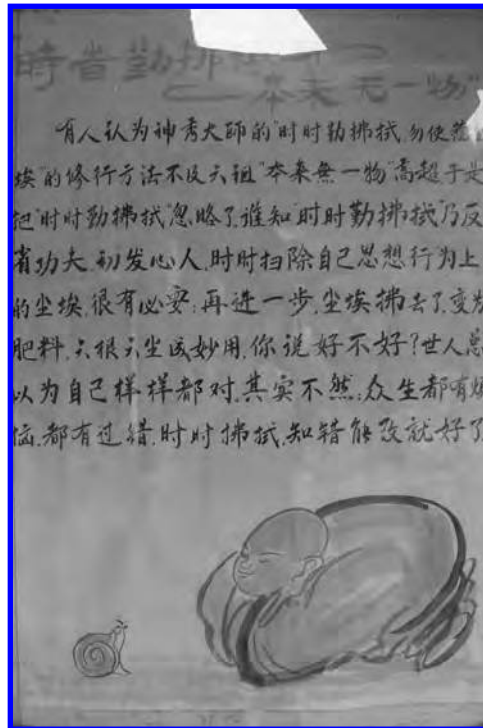 時省勤拂拭
本来无一物"
有人认为神秀大師的"时时勤拂拭,勿使惹
埃"的修行方法不及六祖"本来無一物"高超于是
把"时时勤拂拭"忽略了,谁知"时时勤拂拭"乃反
省功夫.初发心人,时时扫除自己思想行为上
的尘埃,很有必要;再进一步,尘埃拂去了,变为
肥料,六根六尘成妙用,你说好不好?世人总
以为自己样样都对,其实不然;众生都有烦
恼,都有过错,时时拂拭,知错能改就好了